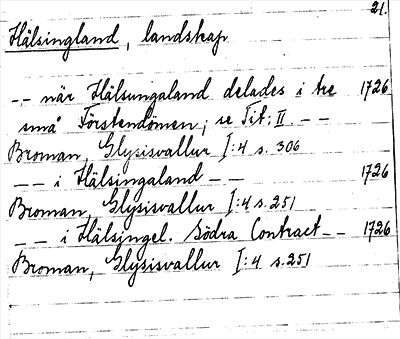 21.
Hälsingland, landskap
-- när Hälsungaland delades i tre 1726
små Förstendömen; se Tit: II. --
Broman, Glysisvallur I:4 s. 306
-- i Hälsingaland -- 1726
Broman, Glysisvallur I:4 s. 251
-- i Hälsingel. Södra Contract -- 1726
Broman, Glysisvallur I:4 s. 251